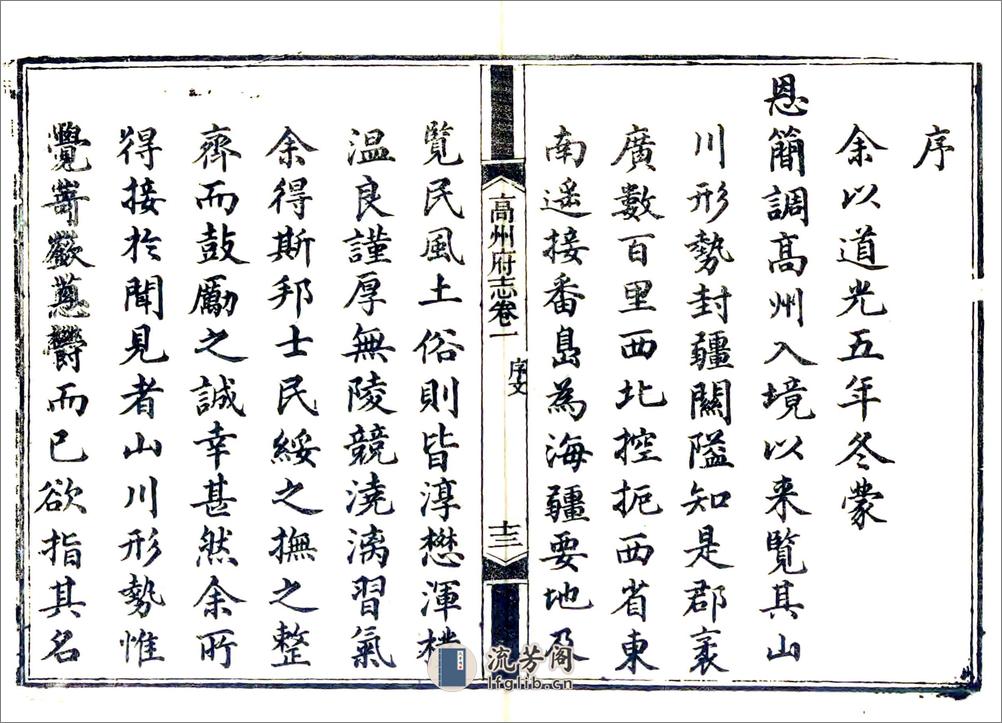 序
余以道光五年冬蒙
恩簡調高州入境以来覽其山
川形勢封疆關隘知是郡袤
廣數百里西北控扼西省東
南遥接番島為海疆要地及
高州府志卷一
序文
十三
覽民風土俗則皆淳懋渾樸
温良謹厚無陵競澆漓習氣
余得斯邦士民綏之撫之整
齊而鼓勵之誠幸甚然余所
得接於聞見者山川形勢惟
覺嵜嶔蔥欝而已欲指其名
流芳阁
lfglib.cn